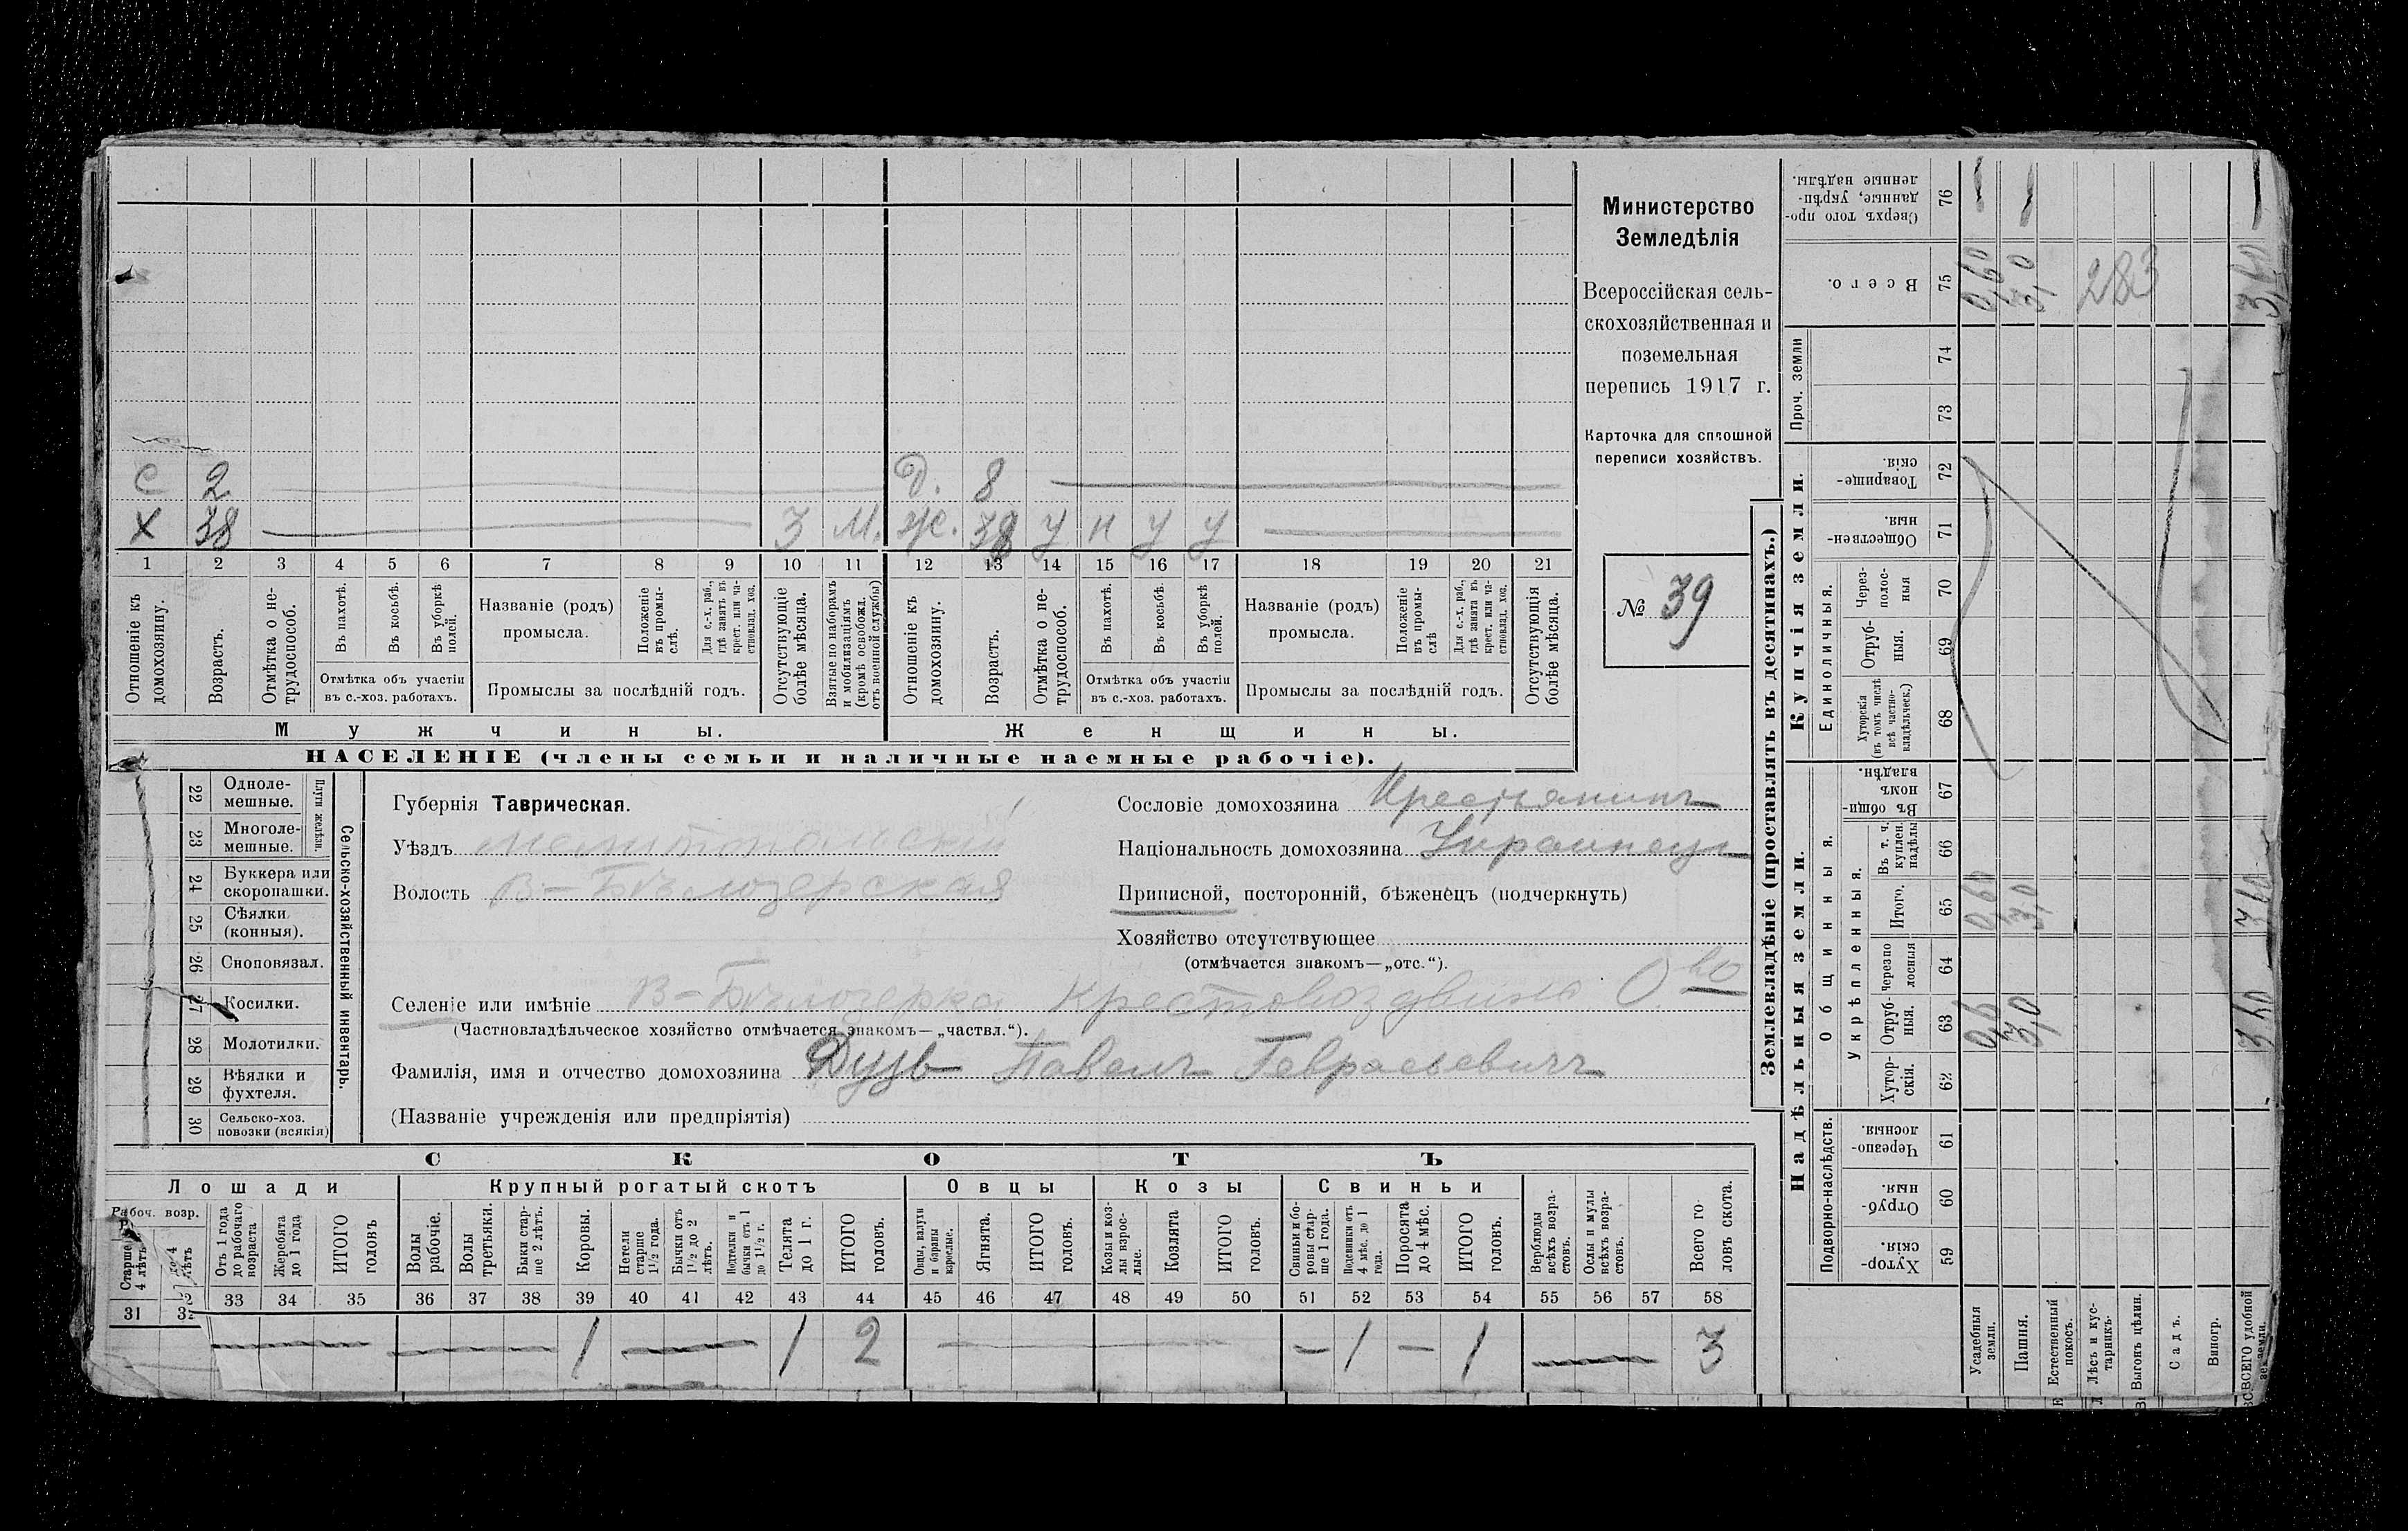 С 2 Д. 8
Х 38 3 М. Ж. 38 у н у у
1 2 3 4 5 6 7 8 9 10 11 12 13 14 15 16 17 18 19 20 21
Отношеніе къ домохозяину.
Возрастъ.
Отмѣтка о нетрудоспособ.
Въ пахотѣ.
Въ косьбѣ.
Въ уборкѣ полей.
Отмѣтка объ участіи въ с.-хоз. работахъ.
Названіе (родъ) промысла.
Положеніе въ промыслѣ.
Для с.-х. раб., гдѣ занятъ въ крест. или частновлад. хоз.
Промыслы за послѣдній годъ.
Отсутствующіе болѣе мѣсяца.
Взятые по наборамъ и мобилизаціямъ (кромѣ освобожд. отъ военной службы)
Отношеніе къ домохозяину.
Возрастъ.
Отмѣтка о нетрудоспособ.
Въ пахотѣ.
Въ косьбѣ.
Въ уборкѣ полей.
Отмѣтка объ участіи въ с.-хоз. работахъ.
Названіе (родъ) промысла.
Положеніе въ промыслѣ
Для с.-х. раб., гдѣ занята въ крест. или частновлад. хоз.
Промыслы за послѣдній годъ.
Отсутствующія болѣе мѣсяца.
Мужчины. Женщины.
НАСЕЛЕНІЕ (члены семьи и наличные наемные рабочіе).
Министерство
Земледѣлія
Всероссійская сель-
скохозяйственная и
поземельная
перепись 1917 г.
Карточка для сплошной
переписи хозяйствъ.
№ 39
22 Одноле-
мешные.
23 Многоле-
мешные.
Плуги желѣзн.
24 Буккера или
скоропашки.
25 Сѣялки
(конныя).
26 Сноповязал.
27 Косилки.
28 Молотилки.
29 Вѣялки и
фухтеля.
30 Сельско-хоз.
повозки (всякія)
Сельско-хозяйственный инвентарь.
Губернія Таврическая.
Уѣздъ Мелитопольскій
Волость В-Бѣлозерская
Сословіе домохозяина Крестьянинъ
Національность домохозяина Украинецъ
Приписной, посторонній, бѣженецъ (подчеркнуть)
Хозяйство отсутствующее
(отмѣчается знакомъ—„отс.“).
Селеніе или имѣніе В-Бѣлозерка Крестовоздвиж. О-во
(Частновладѣльческое хозяйство отмѣчается знакомъ—„частвл.“).
Фамилія, имя и отчество домохозяина Дузь Павелъ Гаврасьевичъ
(Названіе учрежденія или предпріятія)
СКОТЪ
Лошади Крупный рогатый скотъ Овцы Козы Свиньи
Рабоч. возр.
Старше 4 лѣтъ
до 4 лѣтъ
Отъ 1 года до рабочаго возраста
Жеребята до 1 года
ИТОГО головъ
Волы рабочіе.
Волы третьяки.
Быки старше 2 лѣтъ.
Коровы.
Нетели старше 1½ года.
Бычки отъ 1½ до 2 лѣтъ.
Подтелки и бычки отъ 1 до 1½ г.
Телята до 1 г.
ИТОГО головъ.
Овцы, валухи и бараны взрослые.
Ягнята.
ИТОГО головъ.
Козы и козлы взрослые.
Козлята
ИТОГО головъ.
Свиньи и боровы старше 1 года.
Подсвинки отъ 4 мѣс. до 1 года.
Поросята до 4 мѣс.
ИТОГО головъ.
Верблюды всѣхъ возрастовъ.
Ослы и мулы всѣхъ возрастовъ.
Всего головъ скота.
31 32 33 34 35 36 37 38 39 40 41 42 43 44 45 46 47 48 49 50 51 52 53 54 55 56 57 58
1 1 2 1 1 3
Землевладѣніе (проставлять въ десятинахъ.)
Надѣльныя земли. Купчія земли.
Подворно-наслѣдств.
Общинныя.
Укрѣпленныя.
Единоличныя.
Проч. земли
Хуторскія. 59
Отрубныя. 60
Черезполосныя. 61
Хуторскія. 62
Отрубныя. 63
Черезполосныя 64
Итого. 65
Въ т. ч. куплен. надѣлы 66
Въ общинномъ владѣн. 67
Хуторскія (въ томъ числѣ всѣ частновладѣльческ.) 68
Отрубныя. 69
Черезполосныя 70
Общественныя. 71
Товарищескія. 72
73
74
Всего. 75
Сверхъ того проданные, укрѣпленные надѣлы. 76
Усадебныя земли.
Пашня.
Естественный покосъ.
Лѣсъ и кустарникъ.
Выгонъ цѣлин.
Садъ.
Виногр.
ВСЕГО удобной земли.
0,6 3,0 3,60
0,60 3,0 3,60
0,60 3,0 283 3,60